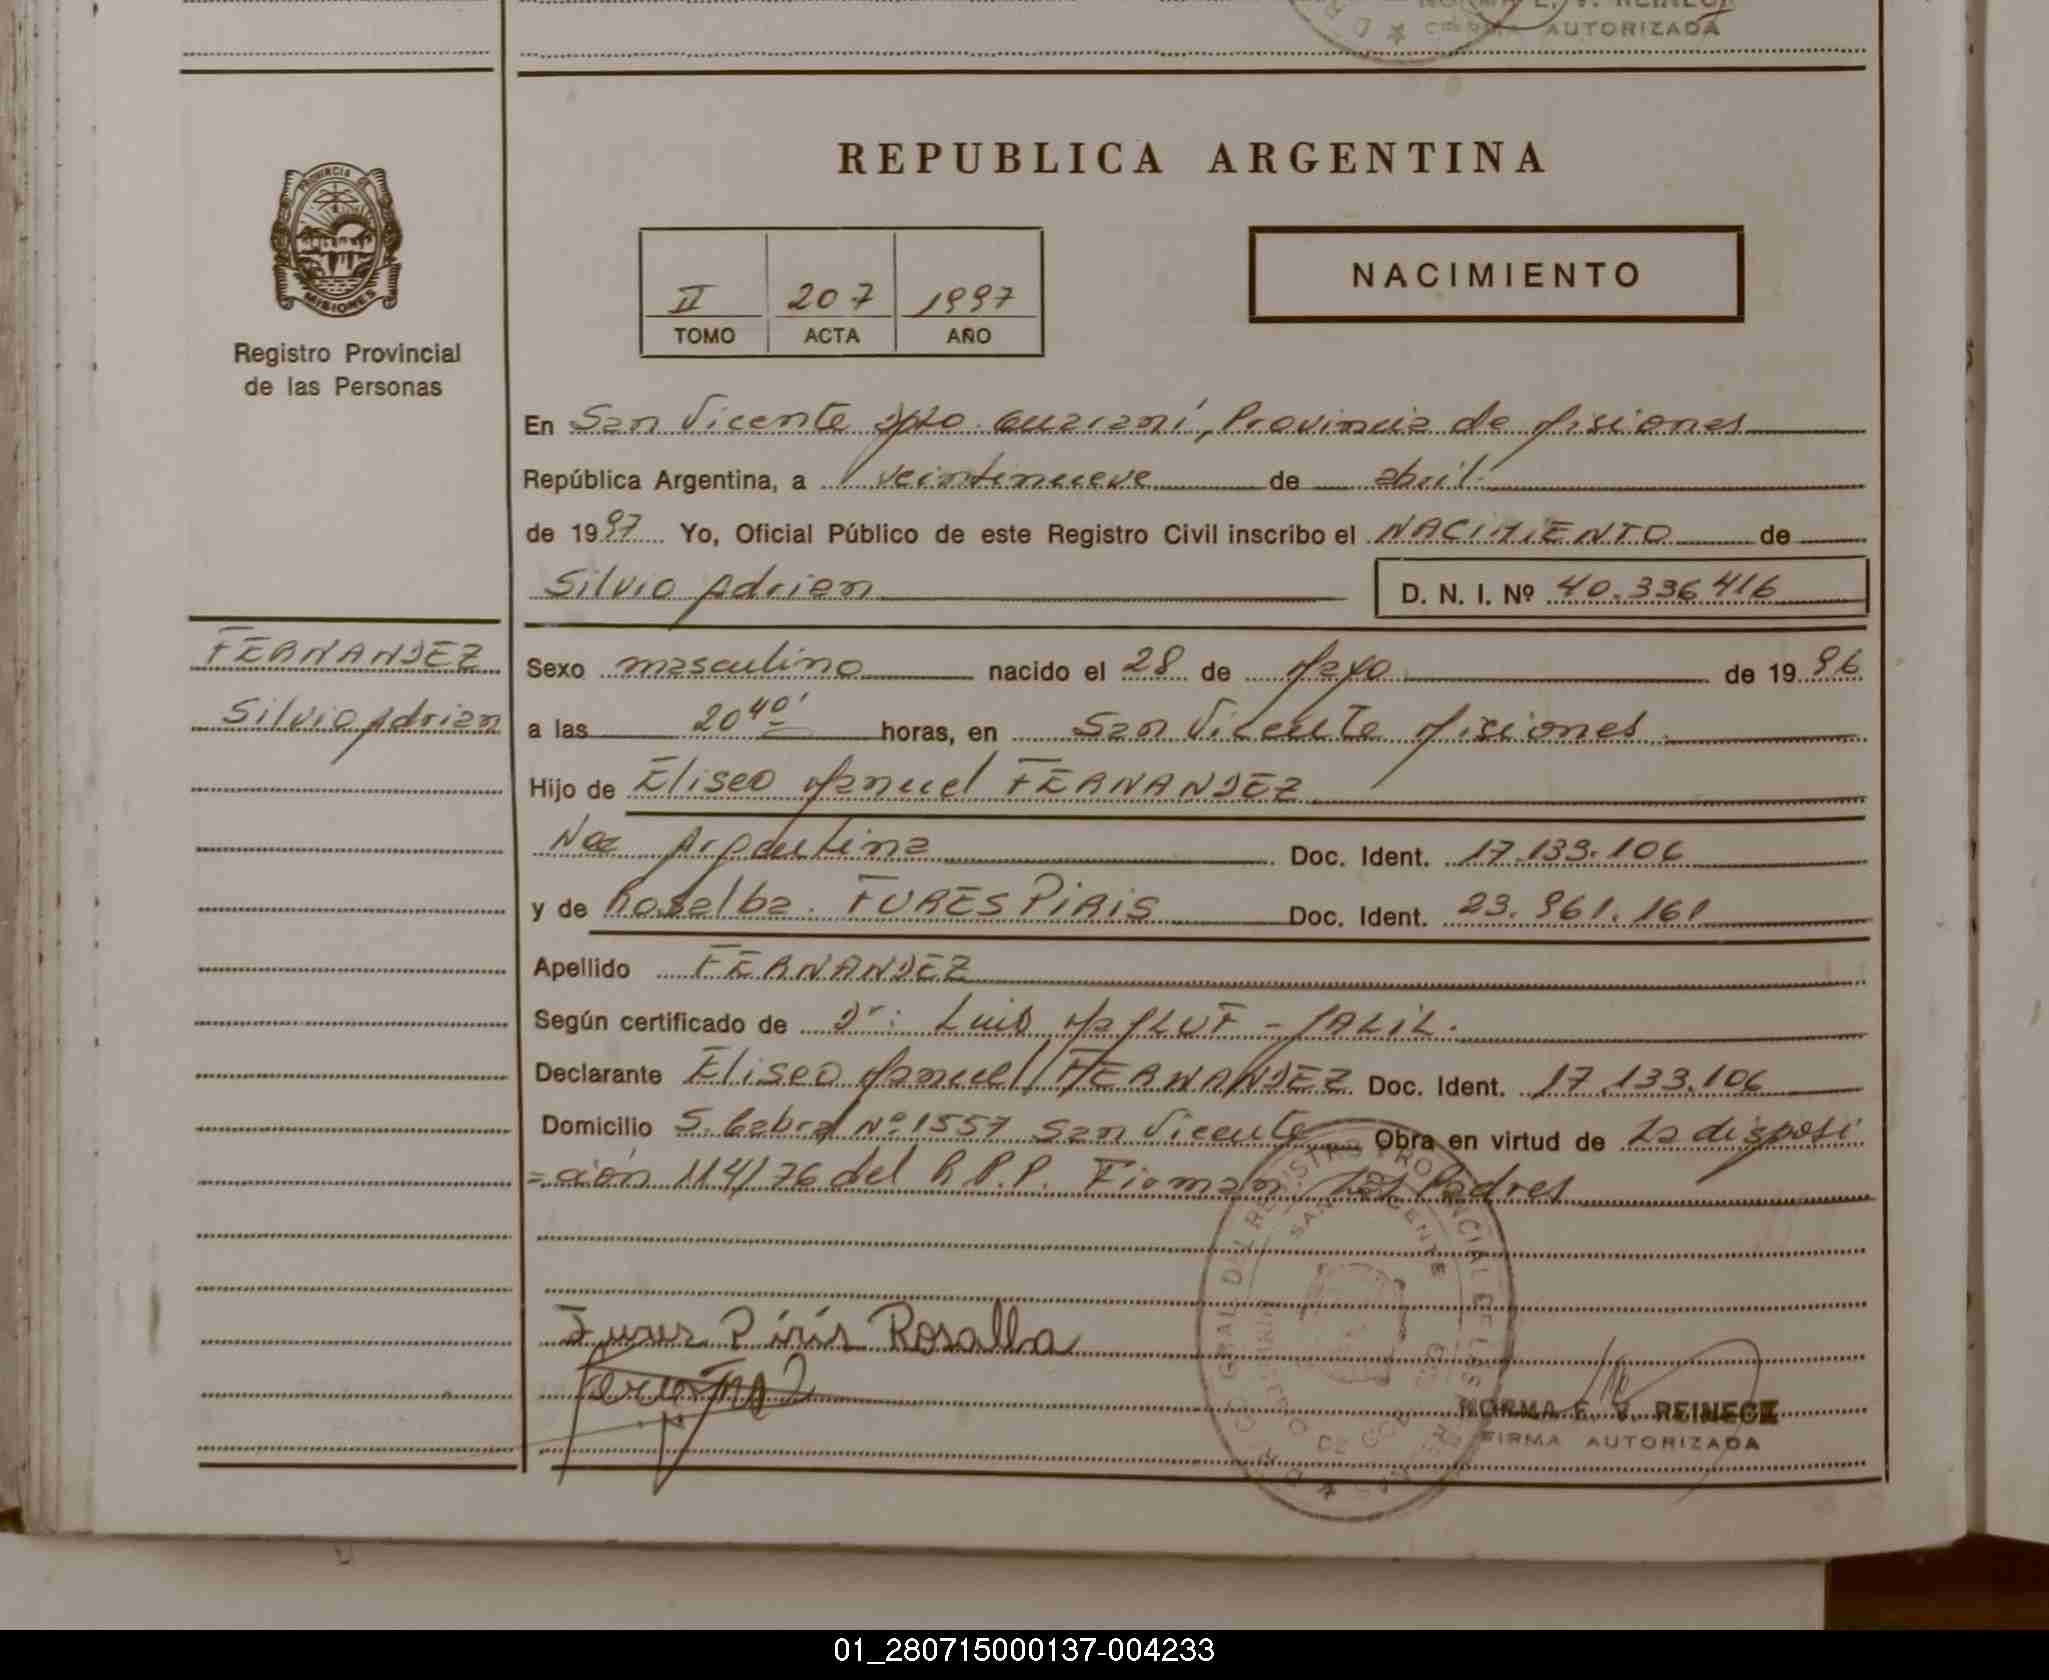 NORMA E. V. REINECK
FIRMA AUTORIZADA
REPUBLICA ARGENTINA
PROVINCIA DE
MISIONES
Registro Provincial
de las Personas
II 207 1997
TOMO ACTA AÑO
NACIMIENTO
En San Vicente Dpto. Guaraní, Provincia de Misiones
República Argentina, a veintinueve de abril
de 1997 Yo, Oficial Público de este Registro Civil inscribo el NACIMIENTO de
Silvio Adrian D. N. I. Nº 40.336416
FERNANDEZ
Silvio Adrian
Sexo masculino nacido el 28 de Mayo de 1996
a las 20 40' horas, en San Vicente Misiones
Hijo de Eliseo Manuel FERNANDEZ
Nac Argentina Doc. Ident. 17.133.106
y de Rosalba FURES PIRIS Doc. Ident. 23.961.161
Apellido FERNANDEZ
Según certificado de Dr: Luis MAYLUF - JALIL.
Declarante Eliseo Manuel FERNANDEZ Doc. Ident. 17.133.106
Domicilio S. Cabral Nº 1557 San Vicente Obra en virtud de La disposi
=ción 114/76 del R.P.P. Firman Los Padres
Fures Piris Rosalba
NORMA E. V. REINECK
FIRMA AUTORIZADA
01_280715000137-004233